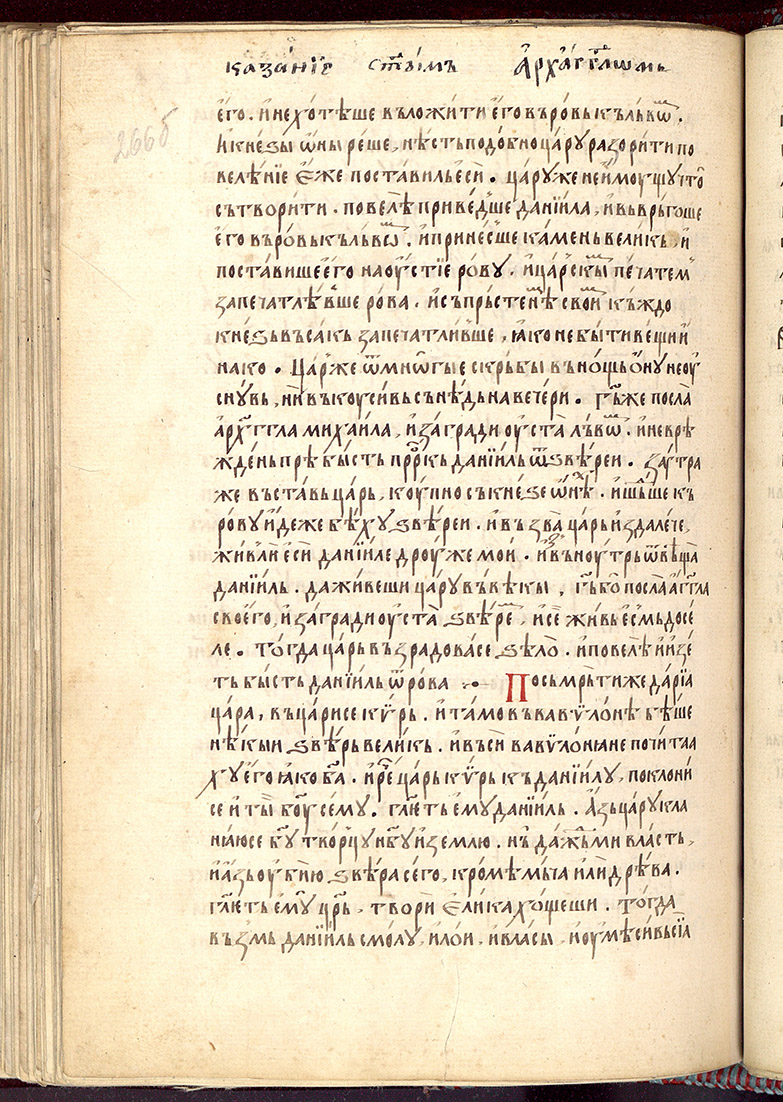 казанїе стыимъ архаггломь
266б
его. и не хотѣше въложити его въ ровь къ львѡⷨ.
и кнезы ѡны рѣше, нѣсть подобно цару разорити по
велѣнїе еже поставиль еси. цару же не имоущу что
сътворити. повелѣ приведше данїила, и вьврьгоше
его въ ровь къ львѡⷨ. и принесше камень великь, и
поставише его на оустїе рову. и царскыⷨ печатемⷽ
запечатлѣвше рова. и съ прьстенѣⷨ своиⷨ къждо
кнезь въсакь запечатливше, ꙗко не быти вещи и
нако. царже ѿ многые скрьбы въ нощь ону не оу
снувь, ни въкоусивь сънѣдь на вечери. гь же посла
архггла михаила, и загради оуста львѡⷨ. и не врѣ
ждень прѣбысть прркь данїиль ѿ ѕвѣреи. заутра
же въставь царь, коупно съ кнеѕе ѡнѣⷨ. и шьⷣше къ
рову идеже бѣху ѕвѣреи. и възва царь издалече,
живь ли еси данїиле дроуже мои. и въноутрь ѿвѣща
данїиль. да живеши цару въ вѣкы, гь бо посла аггла
своего, и загради оуста ѕвѣреⷨ, и се живь есмь досе
ле. тогда царь възрадова се ѕѣло. и повелѣ и изе
ть бысть данїиль ѿ рова По сьмрьти же дарїа
цара, въцари се кѵрь. и тамо въ вавѵлонѣ бѣше
нѣкыи ѕвѣрь великь. и въси вавѵлонꙗне почитаа
ху его ꙗко ба. и рече царь кѵрь къ данїилу, поклони
се и ты боу сему. глеть ему данїиль. азь цару кла
нꙗю се бу творцу нбу и земли. нь даждь ми власть,
и азь оубїю ѕвѣра сего, кромѣ мьча или дрѣва.
глеть ему црь, твори елика хощеши. тогда
възмь данїиль смолу, и лои, и власы, и оумѣсивь сїа